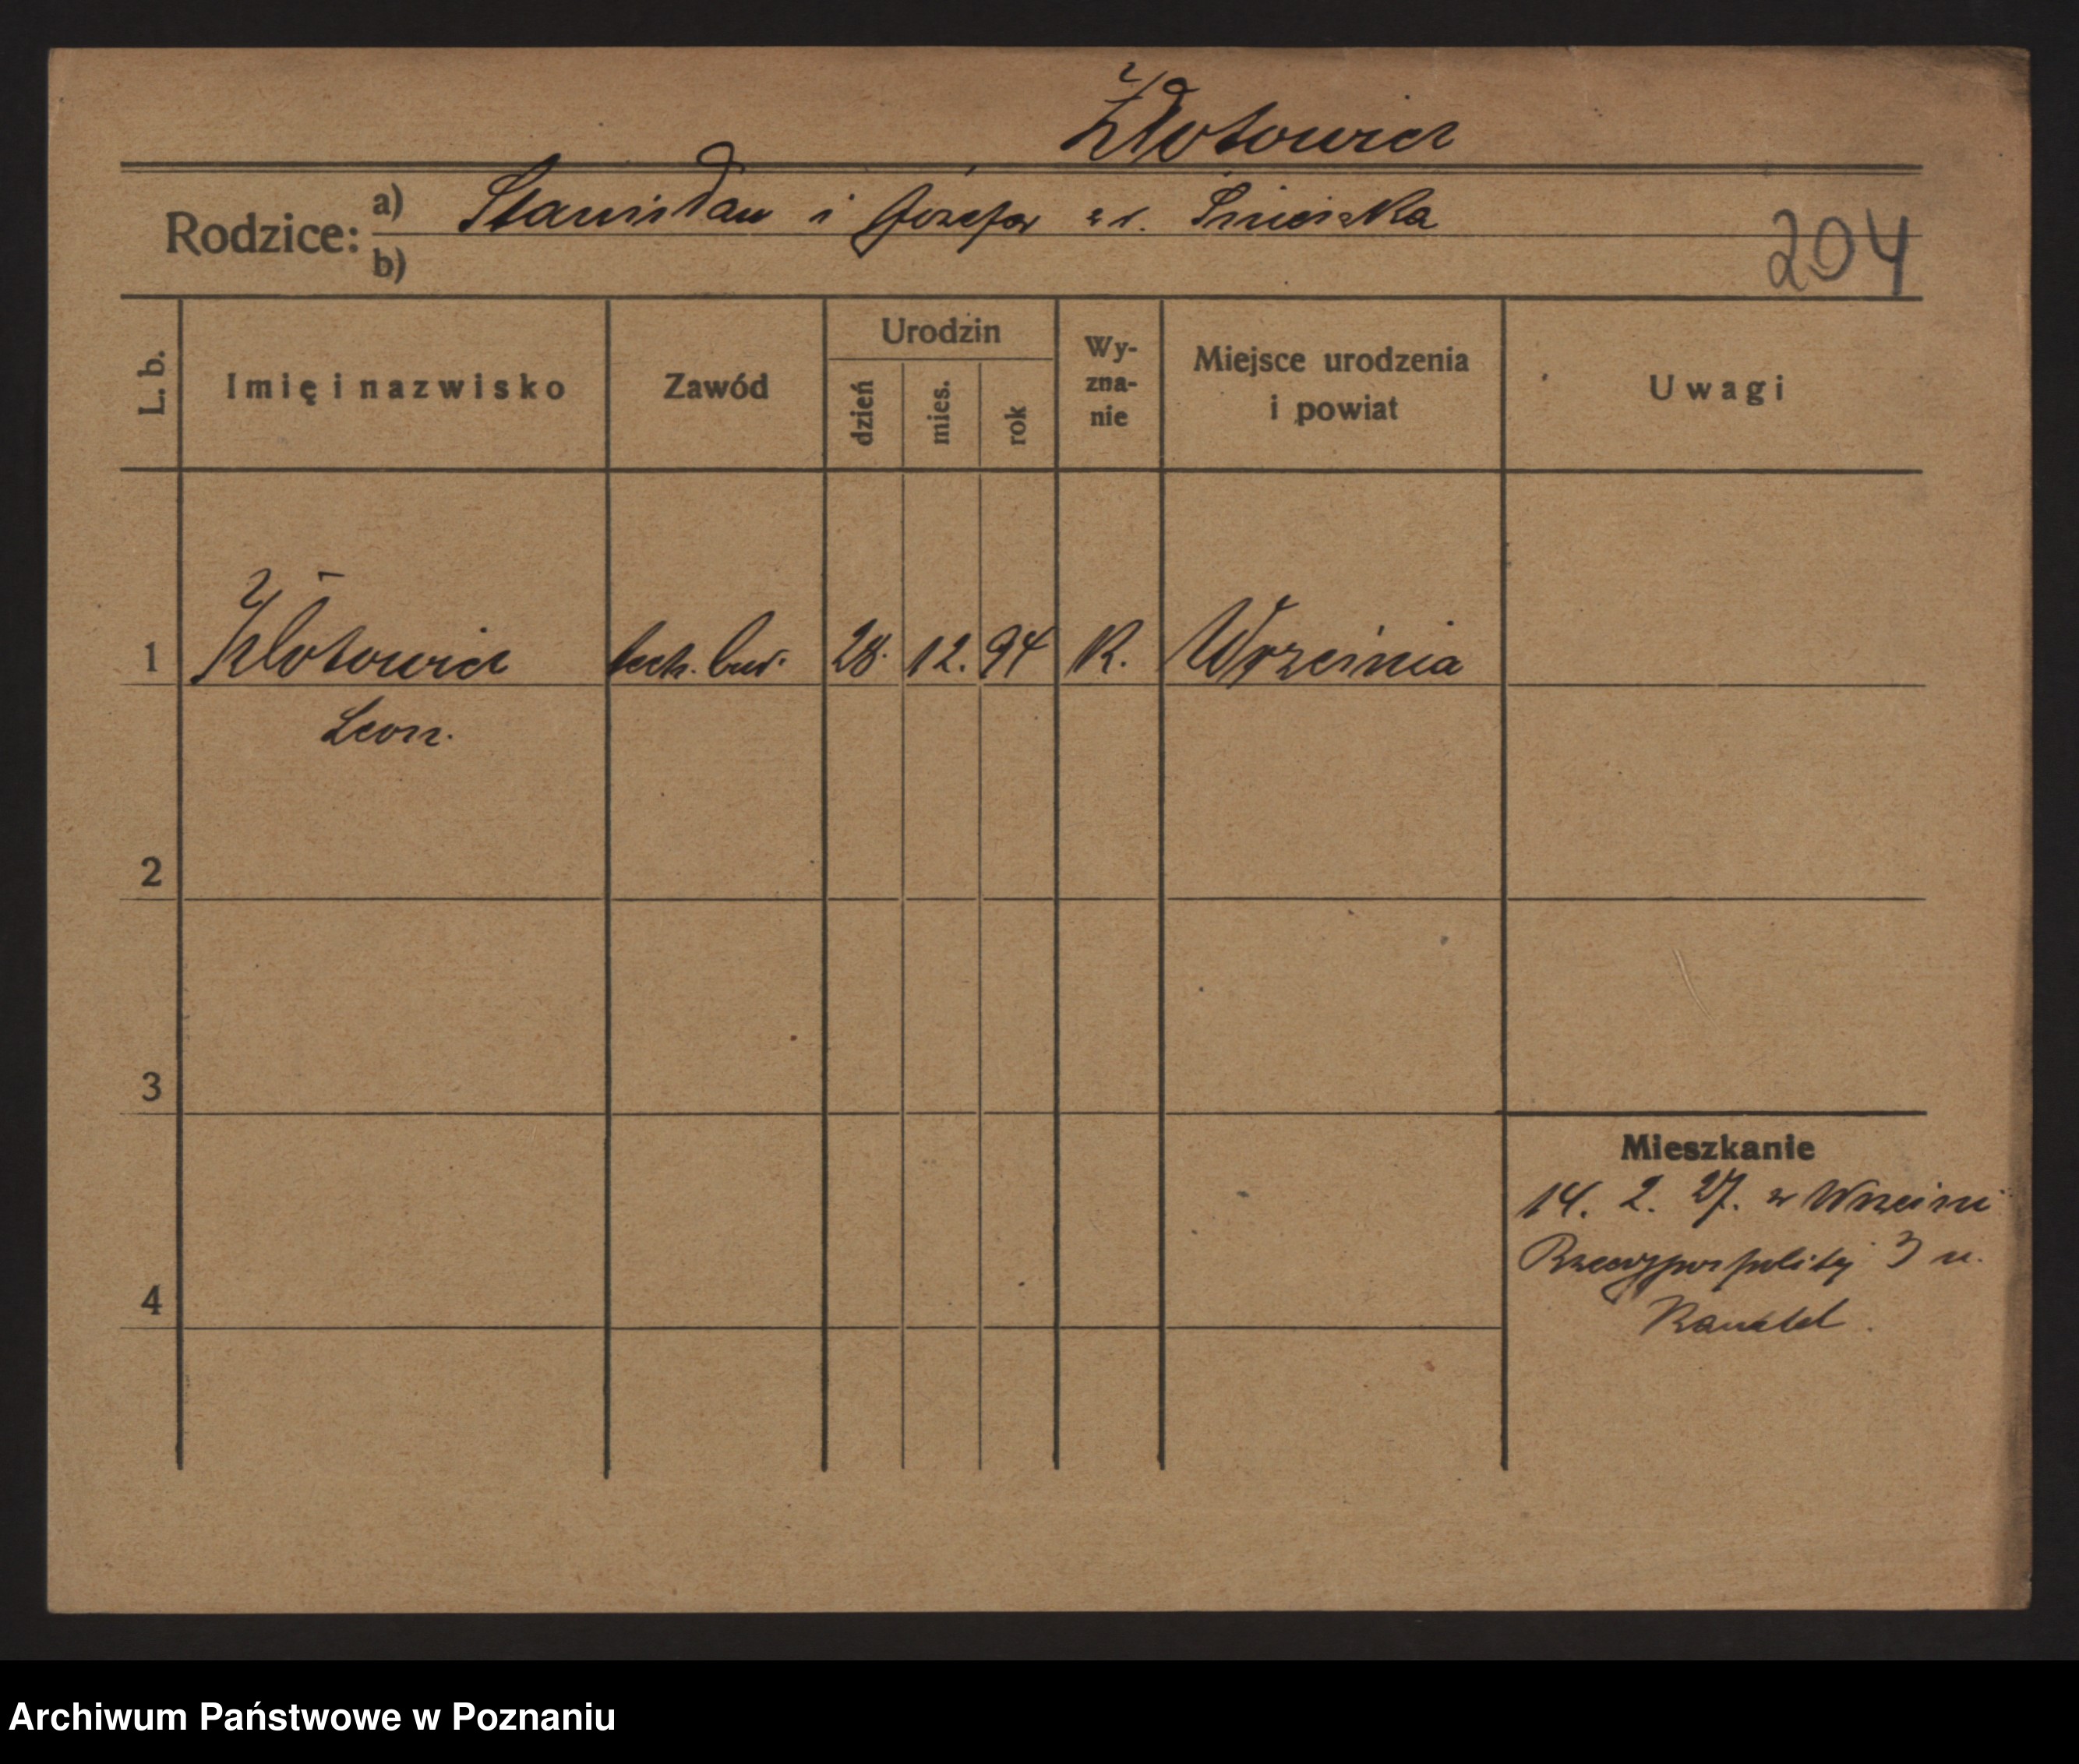 Złotowicz
Rodzice: a) Stanisław i Józefa z d.
b)
204
L. b. Imię i nazwisko Zawód Urodzin dzień mies. rok Wy-zna-nie Miejsce urodzenia i powiat Uwagi
1 Złotowicz tech. bud. 28. 12. 94 K. Września
Leon.
2
3
Mieszkanie
14. 2. 27. w Wrześni
Rzeczypospolitej 3 u.
4
Archiwum Państwowe w Poznaniu